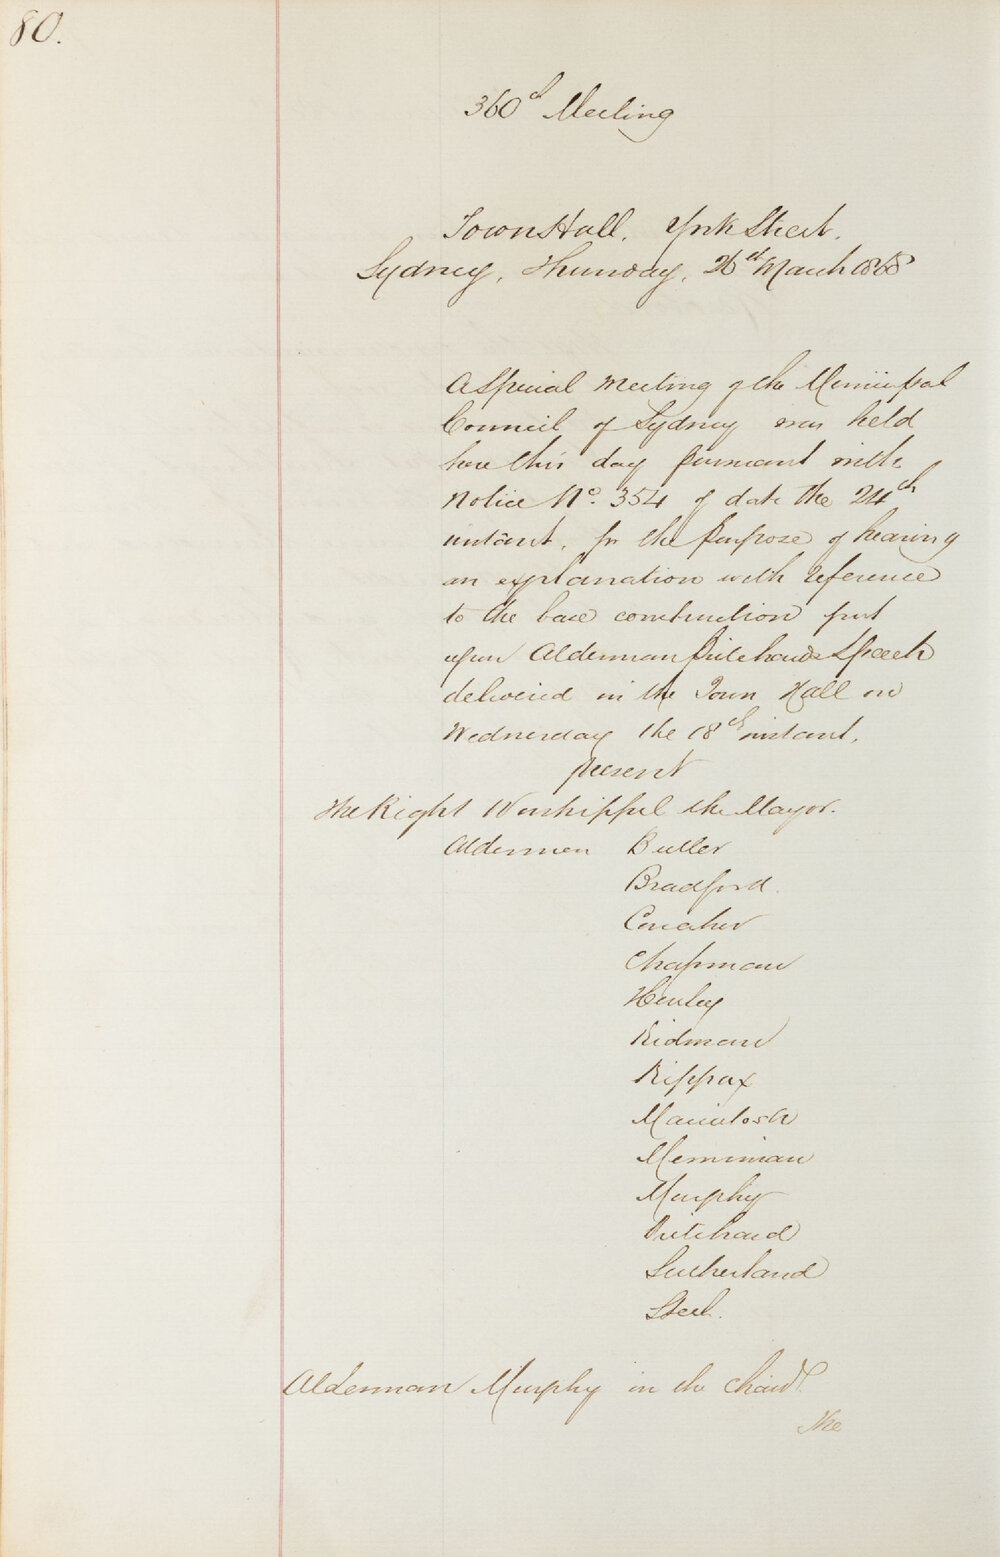 80.
360th Meeting
Town Hall, York Street,
Sydney, Thursday, 26th March 1868
A Special Meeting of the Municipal
Council of Sydney was held
here this day pursuant with
Notice No. 354 of date the 24th
instant, for the purpose of hearing
an explanation with reference
to the base construction put
upon Alderman Pritchards Speech
delivered in the Town Hall on
Wednesday the 18th instant.
present
The Right Worshipful the Mayor.
Aldermen Butler
Bradford.
Conaher
Chapman
Henley
Kidman
Kippax
Macintosh
Merriman
Murphy
Pritchard
Sutherland
Steel.
Alderman Murphy in the chair.
The